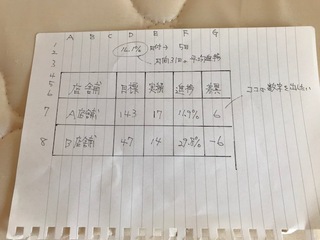 A B C D E F G
1
2 16.1% 日付→ 5日
3 月間31日の平均進捗
4
5
6 店舗 目標 実績 進捗 差異
ココの数字を出したい
7 A店舗 143 17 11.9% 6
8 B店舗 47 14 29.8% -6